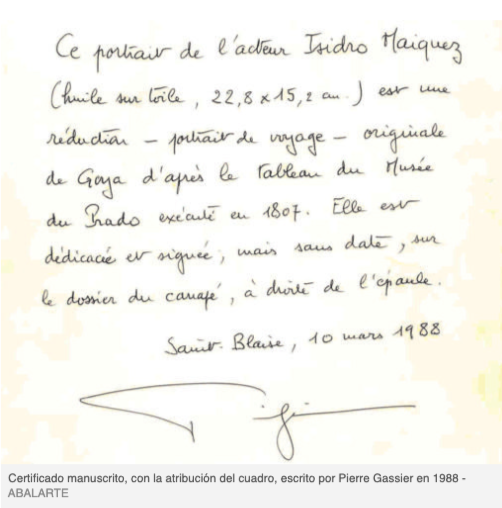 Ce portrait de l'acteur Isidro Maiquez
(huile sur toile, 22,8 x 15,2 cm.) est une
réduction – portrait de voyage – originale
de Goya d'après le tableau du Musée
du Prado exécuté en 1807. Elle est
dédicacée et signée, mais sans date, sur
le dossier du canapé, à droite de l'épaule.
Saint-Blaise, 10 mars 1988
Certificado manuscrito, con la atribución del cuadro, escrito por Pierre Gassier en 1988 -
ABALARTE